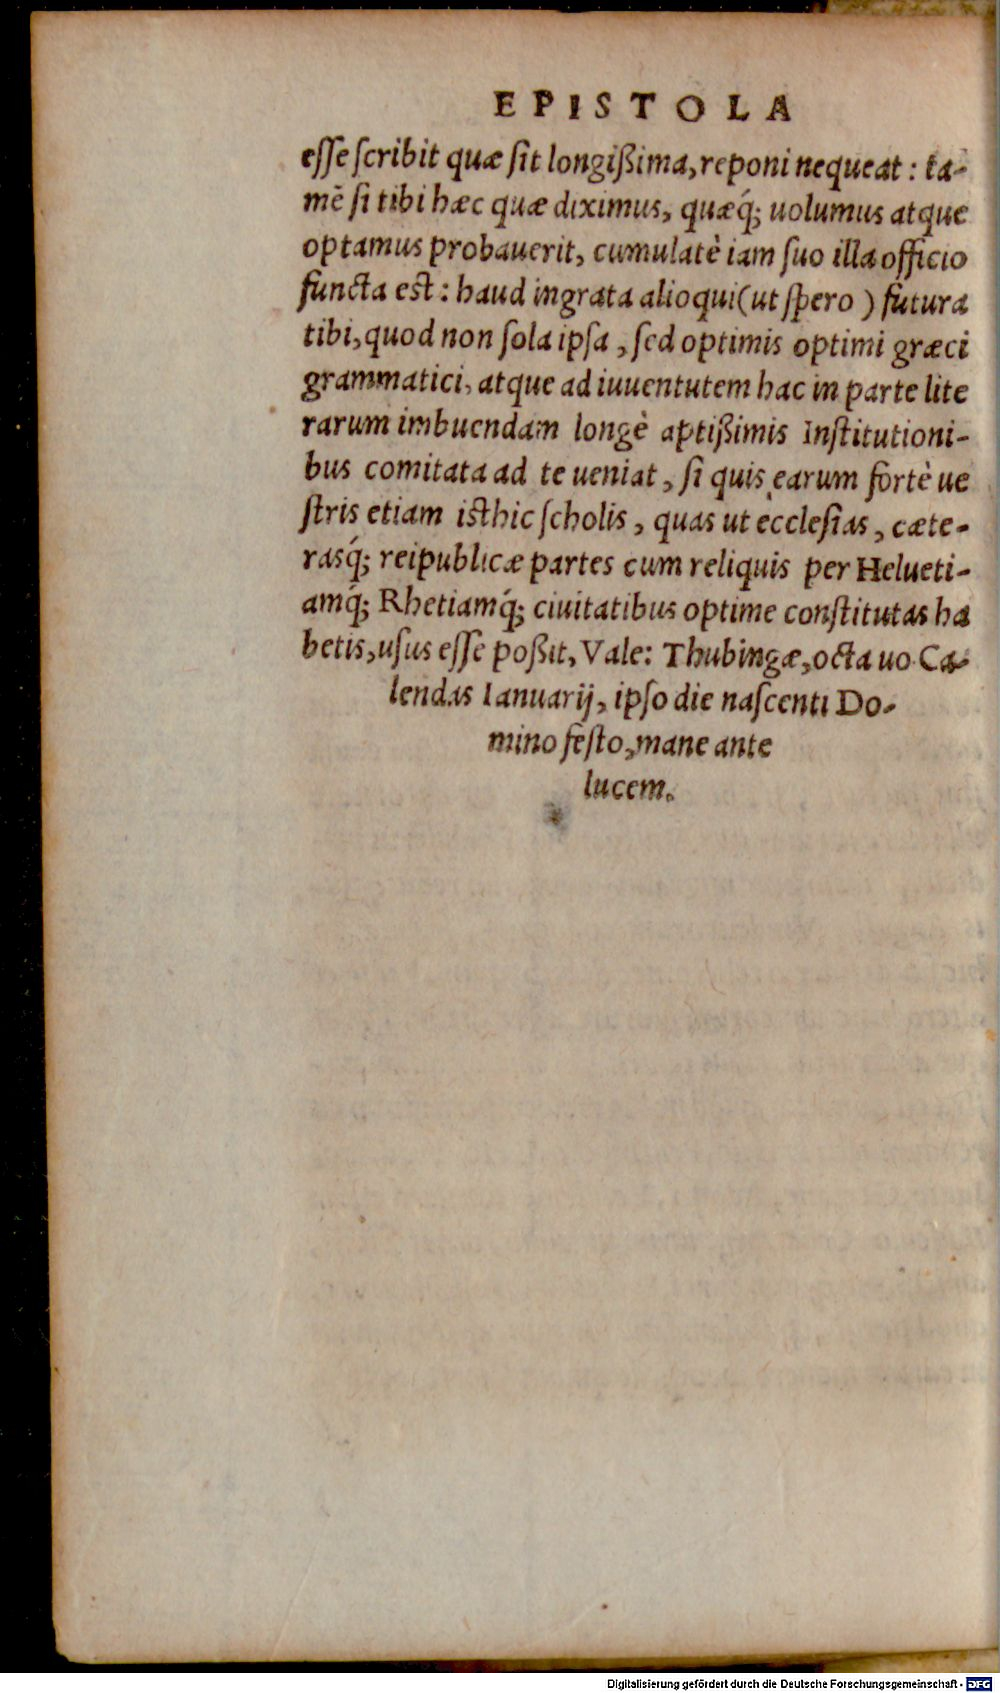 EPISTOLA
esse scribit quæ sit longißima, reponi nequeat : ta-
mē si tibi hæc quæ diximus, quæq́; uolumus atque
optamus probauerit, cumulatè iam suo illa officio
functa est : haud ingrata alioqui (ut spero ) futura
tibi, quod non sola ipsa , sed optimis optimi græci
grammatici, atque ad iuuentutem hac in parte lite
rarum imbuendam longè aptißimis Institutioni-
bus comitata ad te ueniat , si quis earum fortè ue
stris etiam isthic scholis , quas ut ecclesias , cæte-
rasq́; reipublicæ partes cum reliquis per Helueti-
amq́; Rhetiamq́; ciuitatibus optime constitutas ha
betis, usus esse poßit, Vale: Thubingæ, octauo Ca-
lendas Ianuarij, ipso die nascenti Do-
mino festo, mane ante
lucem.
Digitalisierung gefördert durch die Deutsche Forschungsgemeinschaft - DFG